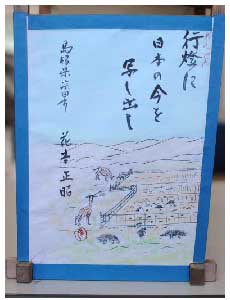 行燈に
日本の今を
写し出し
島根県益田市　花本正昭